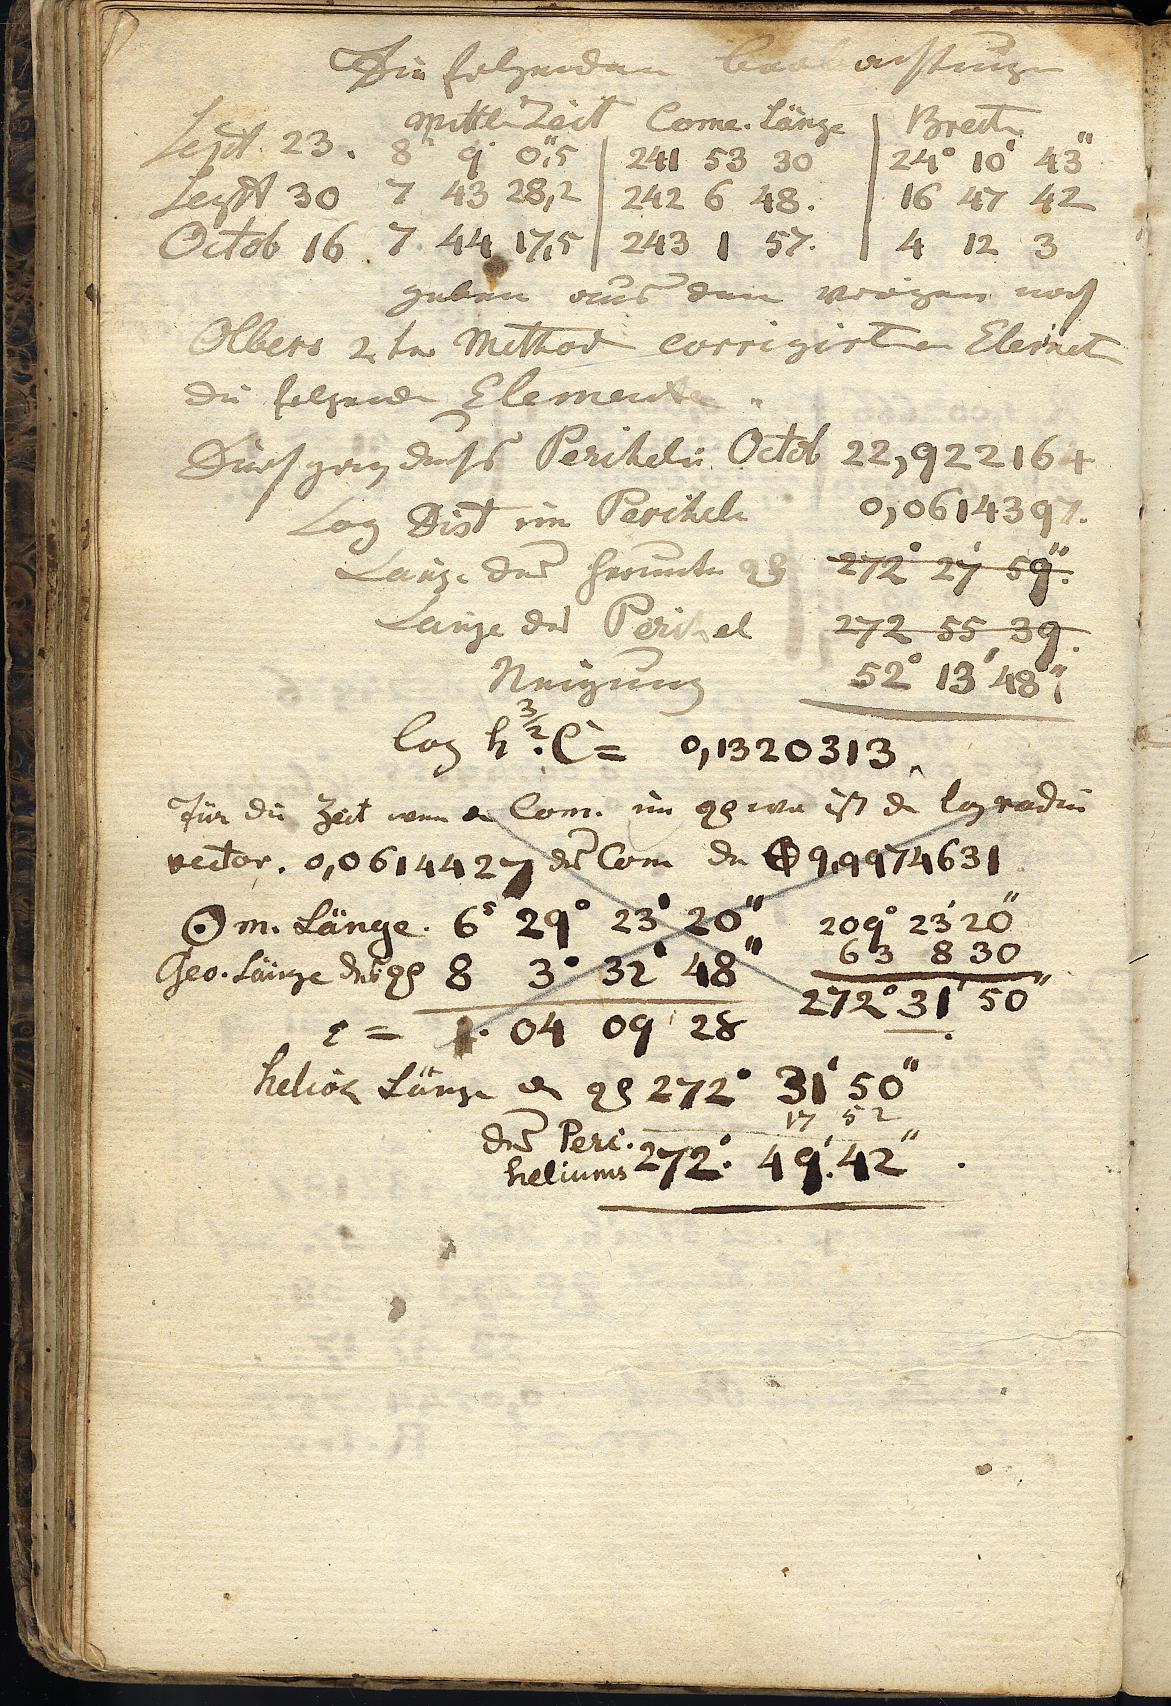 Die folgenden beobachtungen
Mittl Zeit Come. Länge Breite
Sept. 23. 8h 9' 0",5 241 53 30 24° 10' 43"
Sept 30 7 43 28,2 242 6 48. 16 47 42
Octob 16 7 44 17,5 243 1 57. 4 12 3
geben aus den vorigen nach
Olbers 2ten Method corrigirten Element
die folgende Elemente
Durchgang durchs Periheli Octob 22,922164
Log Dist im Perihel 0,0614397.
Länge des ☊ 272° 27' 59".
Länge des Perihel 272 55 39.
Neigung 52° 13' 48"
log h^3/2. C = 0,1320313
Für die Zeit wenn der Com. im ☊ war ist der log radius
vector. 0,0614427 des Com der ⊕ 9,9974631
⊙ m. Länge. 6s 29° 23' 20" 209° 23' 20"
63 8 30
Geo. Länge des ☊ 8 3° 32' 48"
272° 31' 50"
ε = 1. 04 09 28
helioc Länge der ☊ 272° 31' 50"
17 52
des Peri.
heliums 272°. 49'. 42".